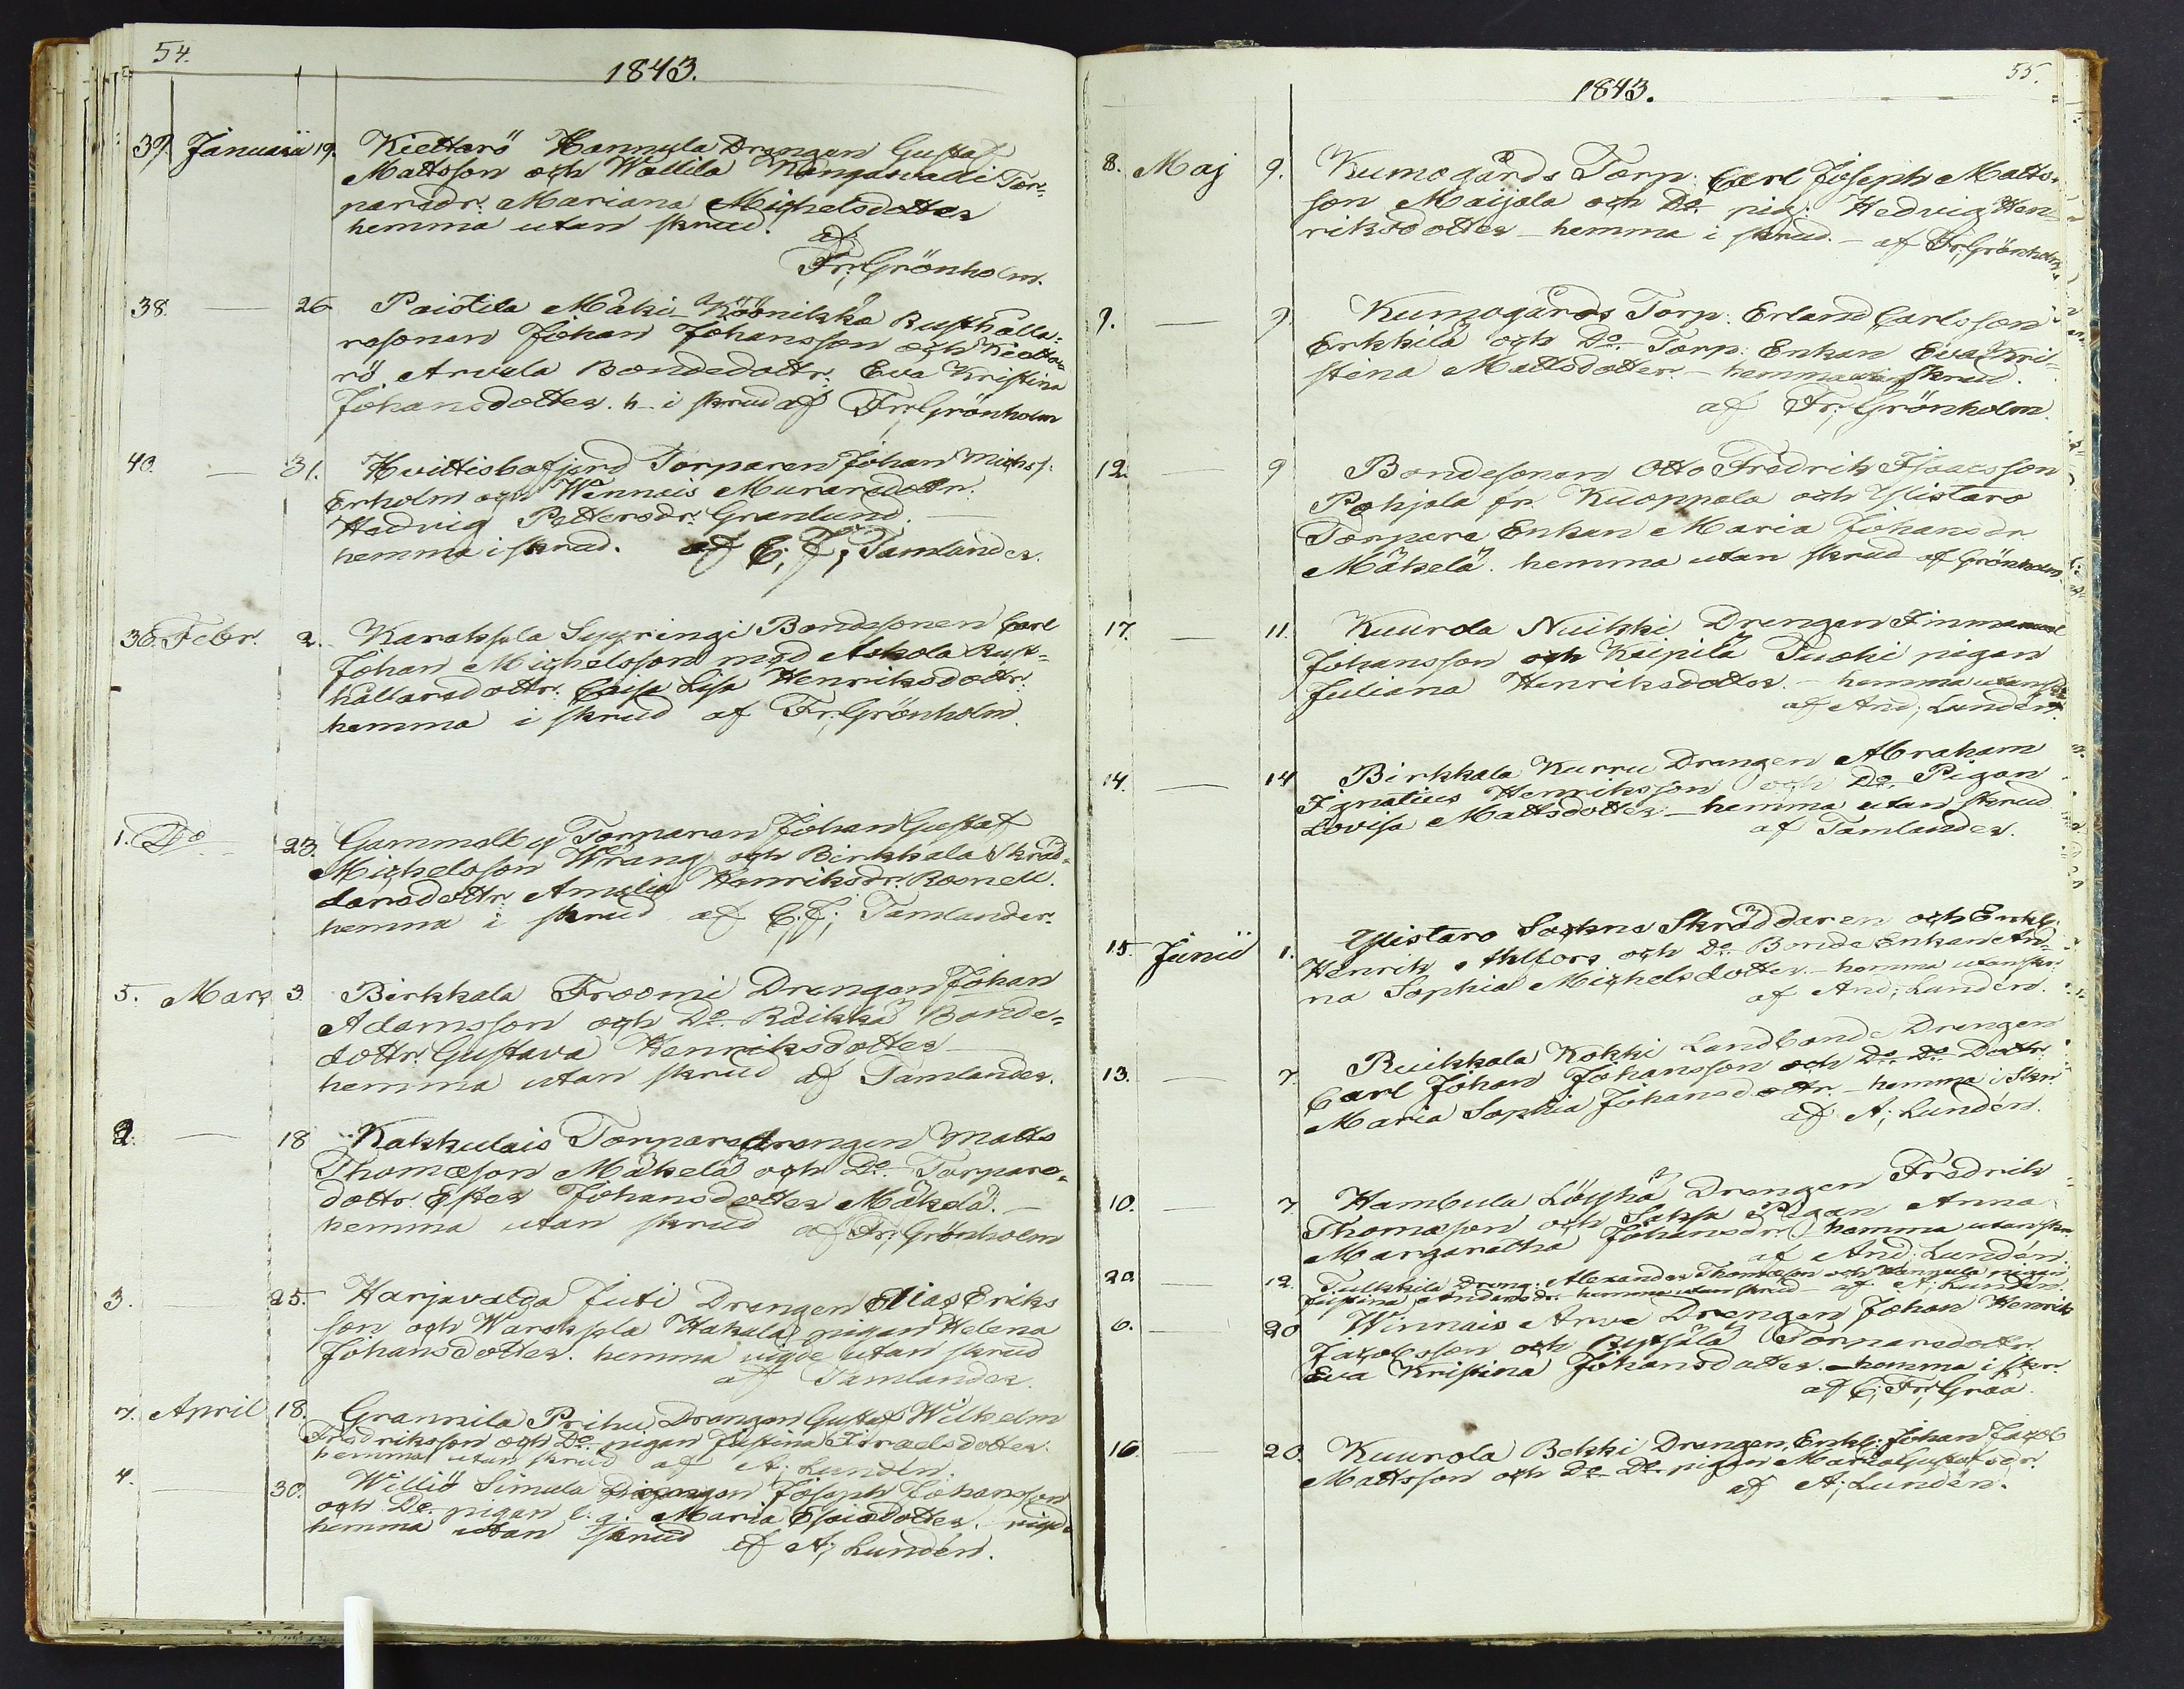 54.
1843.
39. Januarii 19. Kiettarö Hannula Drengen Gustaf
Mattsson och Wallila Kangasvalli Tor-
paredr: Mariana Michelsdotter
hemma utan skrud.
af
Fr: Grönholm.
38. — 26 Paistila Mäki-Köönikkä Rusthålla-
resonen Johan Johansson och Kietta-
rö Arvela Bondedottr: Eva Kristina
Johansdotter. h. i skrud af Fr: Grönholm
40. — 31. Huittisbofjerd Torparen Johan Michss:
Erholm och Wennais Muraredottr.
Hedvig Pettersdr: Granlund. —
hemma i skrud. af C: J; Tamlander.
36. Febr. 2. Karaksela Seppringi Bondesonen Carl
Johan Michelsson med Askola Rust-
hållaredottr: Caisa Lisa Henriksdottr:
hemma i skrud af Fr: Grönholm.
1. Do 23. Gammelby Torparen Johan Gustaf
Michelsson Wrang och Birkkala Skräd-
daredottr: Amalia Henriksdr: Rosnell.
hemma i skrud af C; J; Tamlander.
5. Mars 3 Birkkala Froomi Drengen Johan
Adamsson och Do Räikkä Bonde-
dottr: Gustava Henriksdotter —
hemma utan skrud af Tamlander.
2. — 18 Kakkulais Torparedrengen Matts
Thomæson Mäkelä och Do Torpare-
dottr: Ester Johansdotter Mäkelä. —
hemma utan skrud af Fr: Grönholm
3. 25. Harjavalda Juti Drengen Elias Eriks
son och Hakula pigan Helena
Johansdotter. hemma vigde utan skrud
af Tamlander.
7. April 18. Grannila Prihu Drengen Gustaf Wilhelm
Fredriksson och Do pigan Justina Israelsdotter
hemma utan skrud af A; Lundén.
4. — 30. Williö Simula Drengen Joseph Johansson
och Do pigan Maria Esaiædotter. vigde
hemma utan skrud af A; Lundén.
55.
1843.
8. Maj 9. Kumogårds Torp: Carl Joseph Matts-
son Maijala och Do pig: Hedvig Hen-
riksdotter — hemma i skrud. — af Fr: Grönholm
9. — 9. Kumogårds Torp: Erland Carlsson
Erkkilä och Do Torp: Enkan Eva Kri-
stina Mattsdotter. — hemma skrud.
af Fr: Grönholm.
12. — 9 Bondesonen Otto Fredrik Isaacsson
Pohjala fr. Kuoppala och Ylistaro
Torpare Enkan Maria Johansdr
Mäkelä. hemma utan skrud af Grönholm.
17. — 11. Kuurola Nuikki Drengen
Johansson och Keipilä Tuoki pigan
Juliana Henriksdotter. — hemma utan
af And; Lundén.
14. — 14 Birkkala Kurru Drengen Abraham
Ignatius Henriksson och Do Pigan
Lovisa Mattsdotter — hemma utan skrud
af Tamlander.
15. Junii 1. Ylistaro Sockne Skräddaren och Enkl:
Henrik Ahlfors och Do Bonde Enkan An-
na Sophia Michelsdotter — hemma utan skr:
af And; Lundén.
13. — 7. Ruikkala Kokki Landbonde Drengen
Carl Johan Johansson och Do Do Dottr.
Maria Sophia Johansdottr. — hemma i Skr:
af A; Lundén.
10. — 7 Hambula Löyhä Drengen Fredrik
Thomæson och Pigan Anna
Margaretha Johansdr: hemma utan skr.
af And. Lundén.
20. — 12. Tulkkila Dreng: Alexander Thomæson och Hannula pigan
Justina Andersdr. hemma utan skrud — af A; Lundén.
6. — 20 Winnais Arve Drengen Johan Henrik
Jacobsson och Torparedottr
Eva Kristina Johansdotter. — hemma i skr.
af C; Fr; Graa.
16. 20. Kuurola Bekki Drengen, Enkl: Johan Jacob
Mattsson och Do Do pigan Maria Gustafsdr.
af A; Lundén.